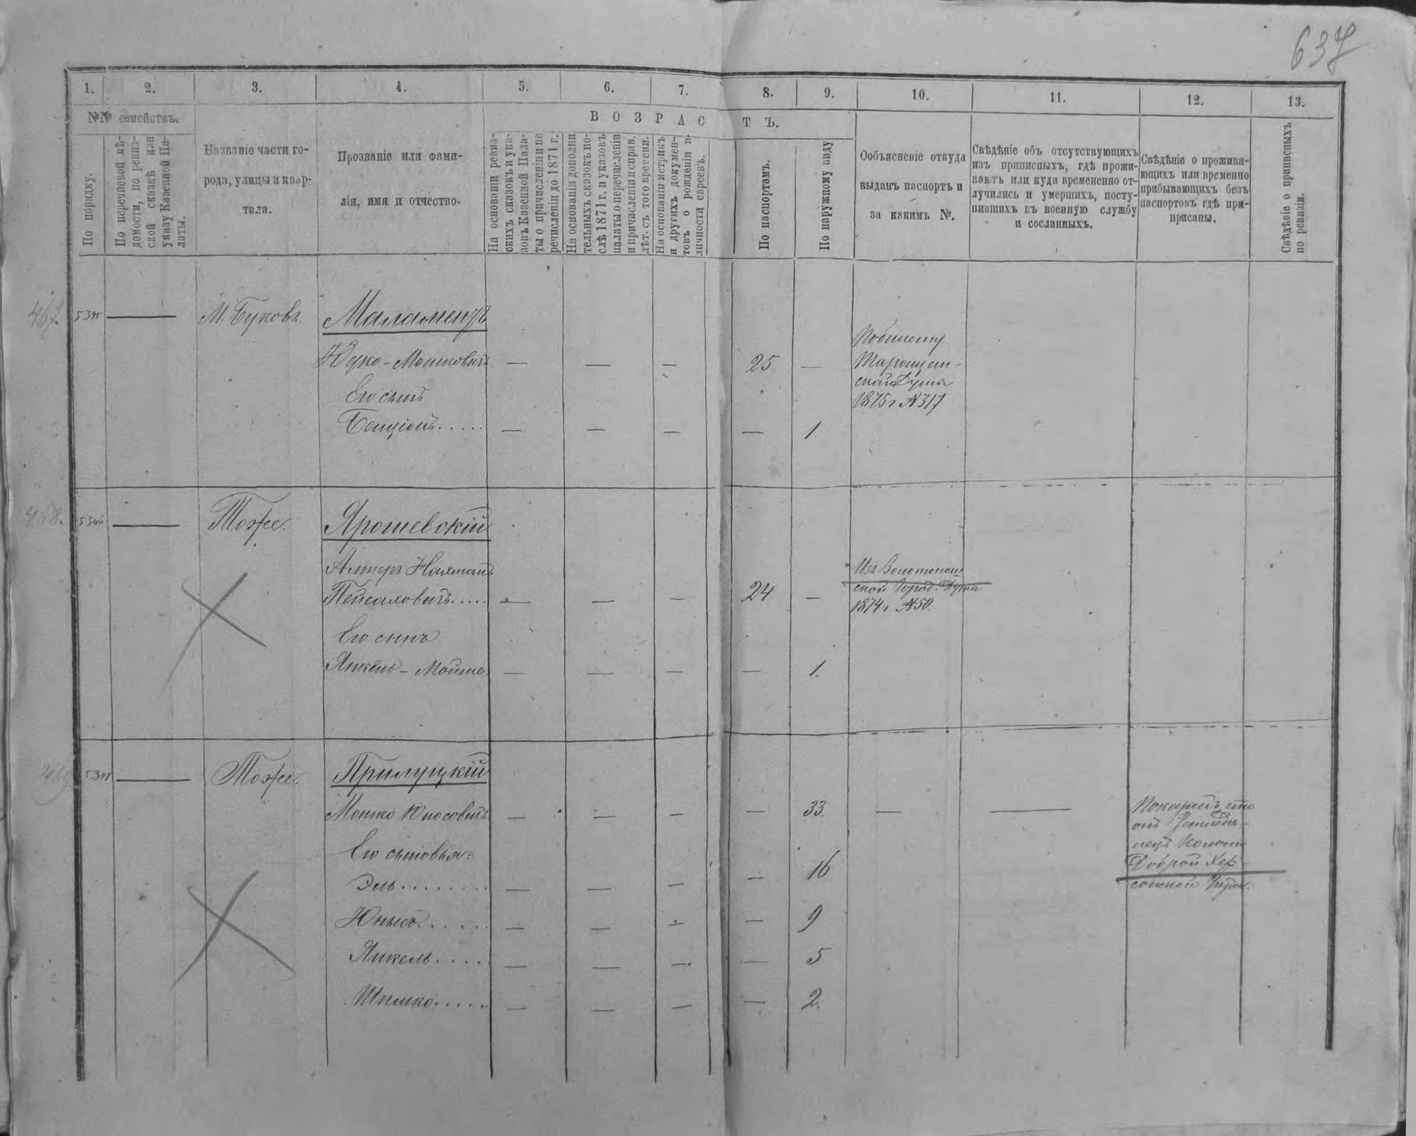 637
1. 2. 3. 4. 5. 6. 7. 8. 9. 10. 11. 12. 13.
№№ семействъ.
ВОЗРАСТЪ.
По порядку.
По перечневой вѣ-
домости, по ревиз-
ской сказкѣ или
указу Казенной Па-
латы.
Названіе части го-
рода, улицы и квар-
тала.
Прозваніе или фами-
лія, имя и отчество.
На основаніи ревиз-
скихъ сказокъ и ука-
зовъ Казенной Пала-
ты о причисленіи и пе
речисленіи до 1871 г.
На основаніи дополни
тельныхъ сказокъ по-
слѣ 1871 г. и указовъ
палаты о перечисленіи
и причисленіи и справ.
лѣт. съ того времени.
На основаніи метрикъ
и другихъ докумен-
товъ о рожденіи и
личности евреевъ.
По паспортамъ.
По наружному виду
Объясненіе откуда
выданъ паспортъ и
за какимъ №.
Свѣдѣніе объ отсутствующихъ
изъ приписныхъ, гдѣ прожи-
ваютъ или куда временно от-
лучились и умершихъ, посту-
пившихъ въ военную службу
и сосланныхъ.
Свѣдѣніе о прожива-
ющихъ или временно
прибывающихъ безъ
паспортовъ гдѣ при-
присаны.
Свѣдѣніе о приписныхъ
по ревизіи.
467 М. Буковъ. Маламентъ
Юдко-Мошковичъ — — — 25 —
По билету
Таращан-
ской Думы
1875 г №317
Его сынъ
Бенціонъ..... — — — — 1
468. 5346 — Тоже. Ярошевскій
Алтеръ Нахманъ
Пейсаховичъ..... — — — 24 —
Изъ Золотонош
ской Город. Думы
1874 г №50.
Его сынъ
Янкель-Мошко — — — — 1.
— Тоже. Прилуцкій
Мошко Юносовичъ — — — — 33. — —
Его сыновья:
Эль........ — 16
Юнысъ..... — — — — 9
Янкель..... — — — — 5
Шлемко..... — — — — 2.
Доброй Хер-
сонской Губер.